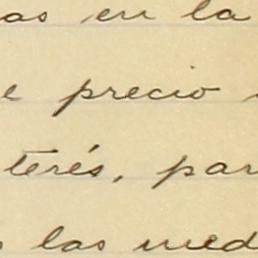 as en la
e precio
terés, par
s las med